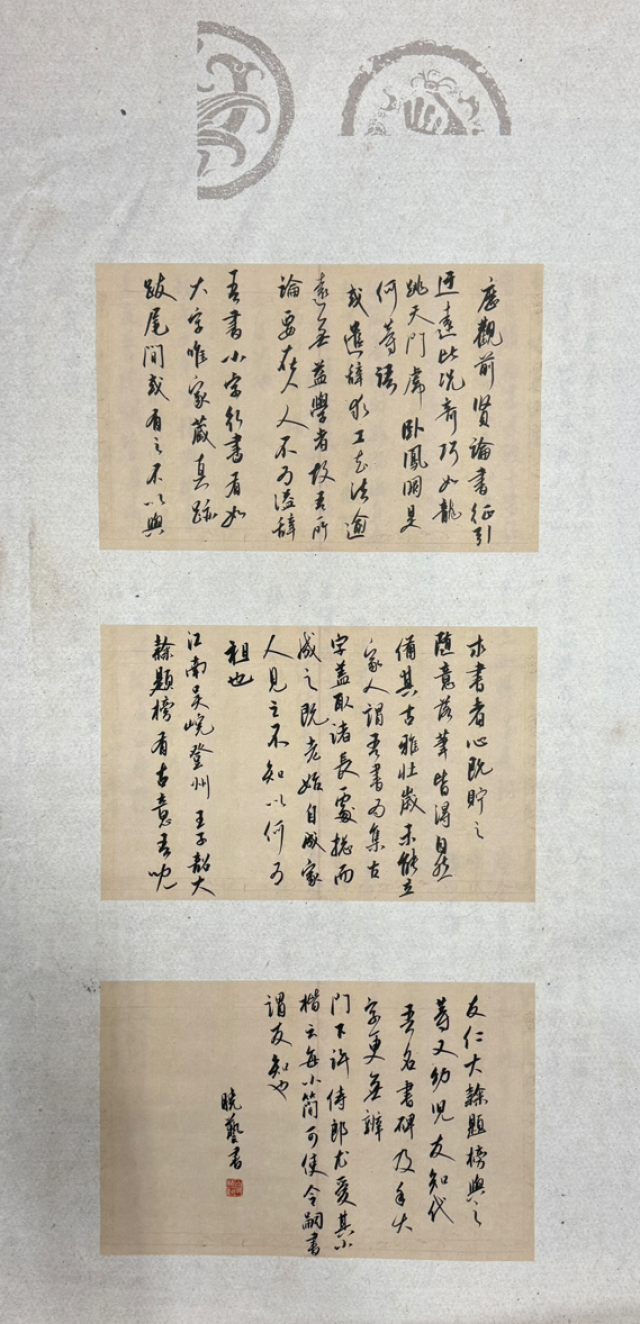 歷觀前賢論書征引
迂遠比況奇巧如龍
跳天門虎臥鳳閣是
何等語
或遣辭求工去法逾
遠無益學者故吾所
論要在入人不為溢辭
吾書小字行書有如
大字唯家藏真跡
跋尾間或有之不以與
求書者心既貯之
隨意落筆皆得自然
備其古雅壯歲未能立
家人謂吾書為集古
字蓋取諸長處總而
成之既老始自成家
人見之不知以何為
祖也
江南吳皖登州王子韶大
隸題榜有古意吾兒
友仁大隸題榜與之
等又幼兒友知代
吾名書碑及手大
字更無辨
門下許侍郎尤愛其小
楷云每小簡可使令嗣書
謂友知也
曉藝書